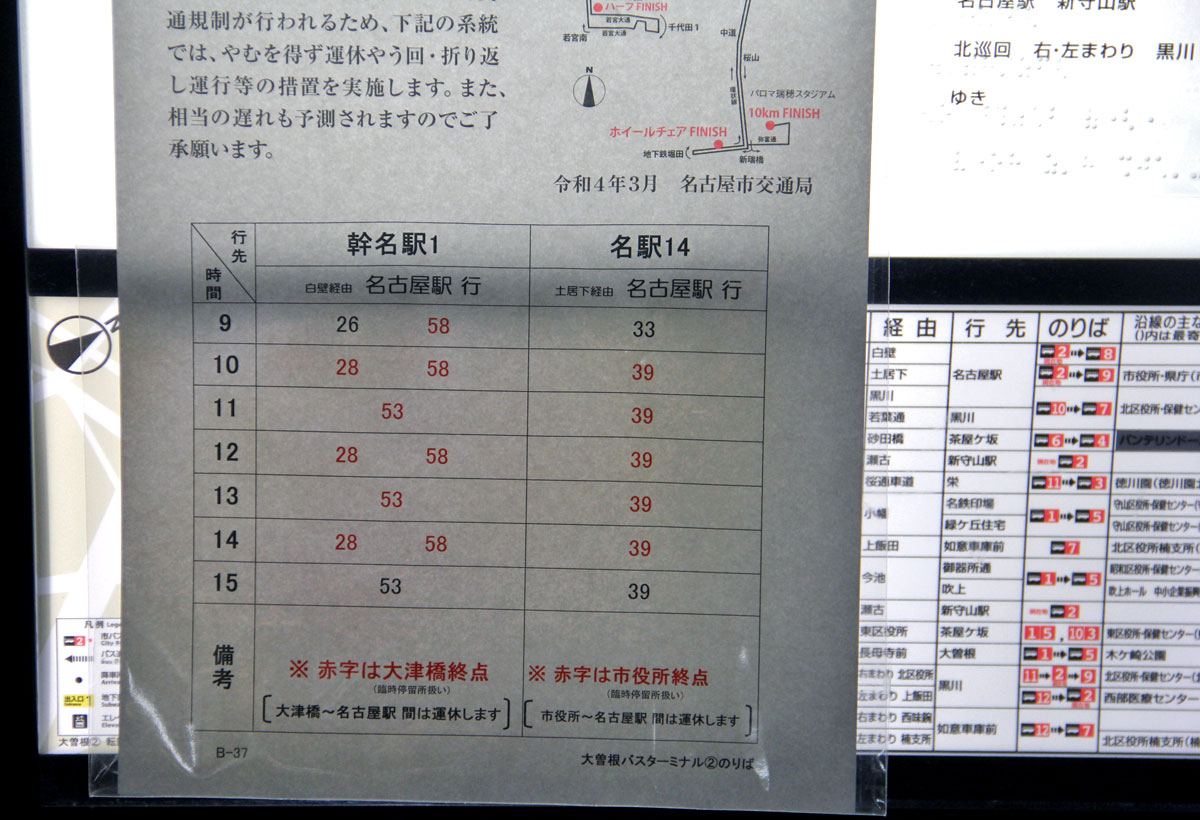 通規制が行われるため、下記の系統
では、やむを得ず運休やう回・折り返
し運行等の措置を実施します。また、
相当の遅れも予測されますのでご了
承願います。
ハーフ FINISH
若宮大通
若宮南
若宮大通
千代田1
中道
桜山
環状線
パロマ瑞穂スタジアム
10km FINISH
ホイールチェア FINISH
弥富通
地下鉄堀田
新瑞橋
N
令和4年3月 名古屋市交通局
行先
時間
幹名駅1
名駅14
白壁経由 名古屋駅 行
土居下経由 名古屋駅 行
9 26 58 33
10 28 58 39
11 53 39
12 28 58 39
13 53 39
14 28 58 39
15 53 39
備考
※ 赤字は大津橋終点
(臨時停留所扱い)
[大津橋～名古屋駅 間は運休します]
※ 赤字は市役所終点
(臨時停留所扱い)
[市役所～名古屋駅 間は運休します]
B-37
大曽根バスターミナル②のりば
名古屋駅 新守山駅
北巡回 右・左まわり 黒川
ゆき
経由 行先 のりば 沿線の主な
()内は最寄
白壁 名古屋駅 2 8
土居下 2 9 市役所・県庁(
黒川 10 7 北区役所・保健セン
若葉通 黒川
砂田橋 茶屋ケ坂 6 4 バンテリンドー
瀬古 新守山駅 2
桜通車道 栄 11 3 徳川園(徳川園
小幡 名鉄印場 1 5 守山区役所・保健センター(
緑ケ丘住宅 守山区役所・保健センター(
上飯田 如意車庫前 7 北区役所楠支所(
今池 御器所通 1 5 昭和区役所・保健センター
吹上 吹上ホール 中小企業振興
瀬古 新守山駅 2
東区役所 茶屋ケ坂 1 5 , 10 3 東区役所・保健センター(
長母寺前 大曽根 1 5 木ケ崎公園
右まわり 北区役所 黒川 11 2 9 北区役所・保健センター(
左まわり 上飯田 12 2 西部医療センター
右まわり 西味鋺 如意車庫前 12 7
左まわり 楠支所 北区役所楠支所(楠
凡例
2
市バス
出入口 1
大曽根②